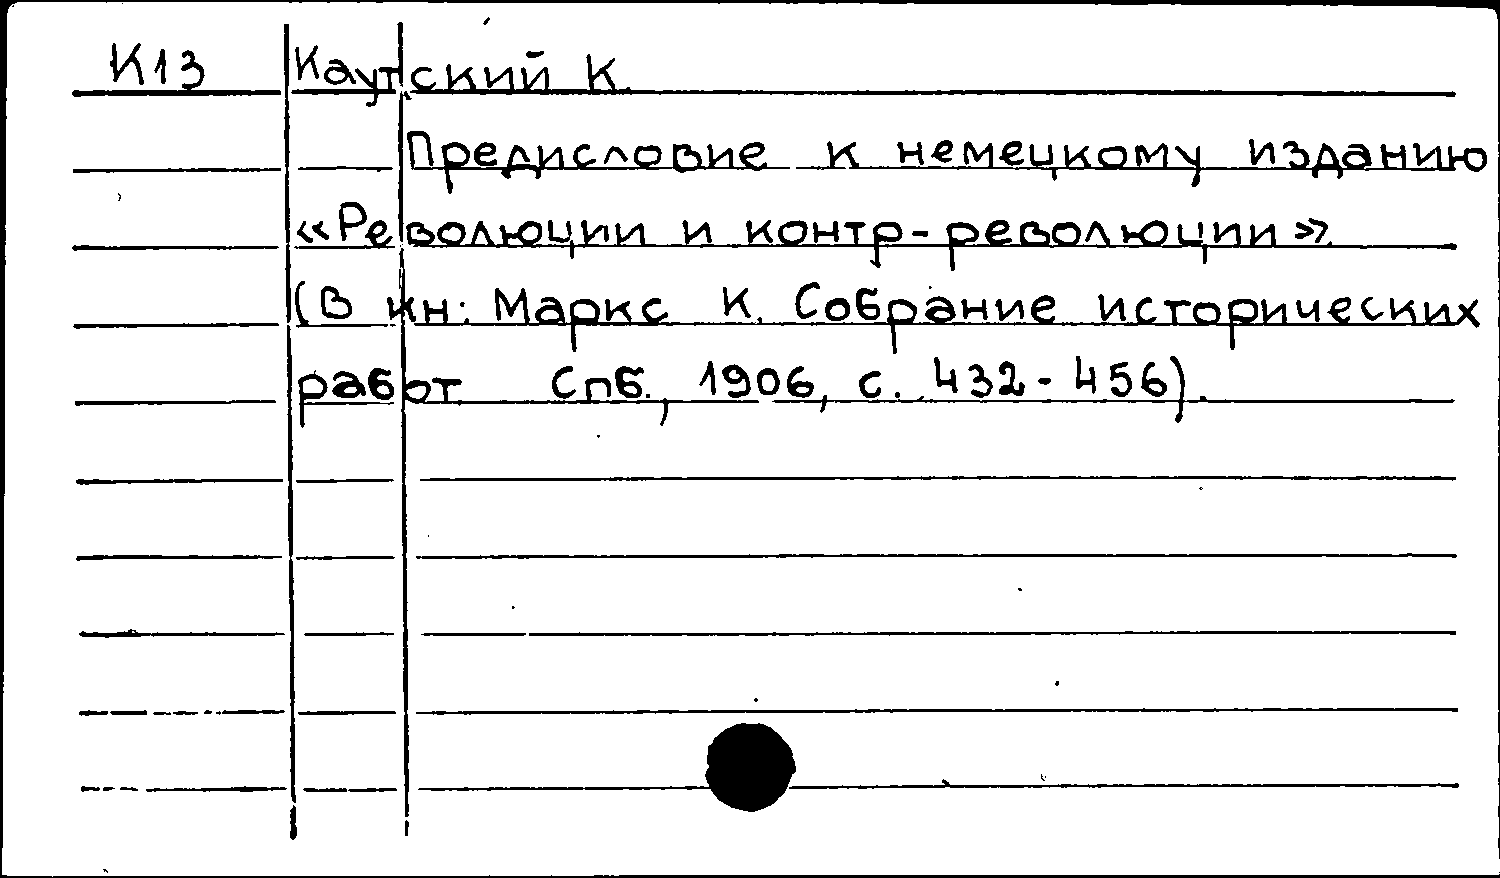 К13 Каутский К.
Предисловие к немецкому изданию
«Революции и контр-революции».
(В кн: Маркс К. Собрание исторических
работ Спб., 1906, с. 432-456).